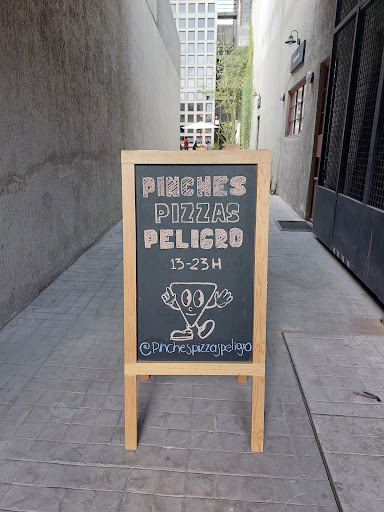 PINCHES
PIZZAS
PELIGRO
13-23H
@pinchespizzaspeligro